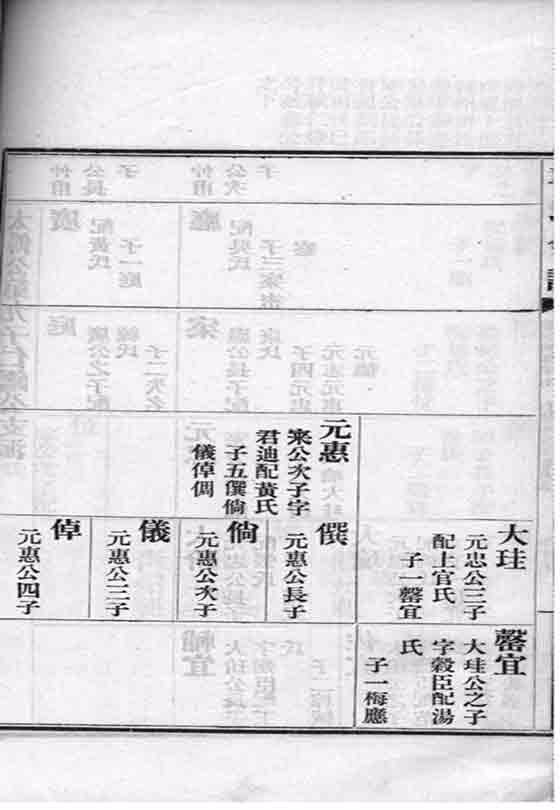 元惠
寀公次子字
君迪配黃氏
子五僎倘
儀倬倜
大珪
元忠公三子
配上官氏
子一罄宜
僎
元惠公長子
倘
元惠公次子
儀
元惠公三子
倬
元惠公四子
罄宜
大珪公之子
字穀臣配湯
氏
子一梅應